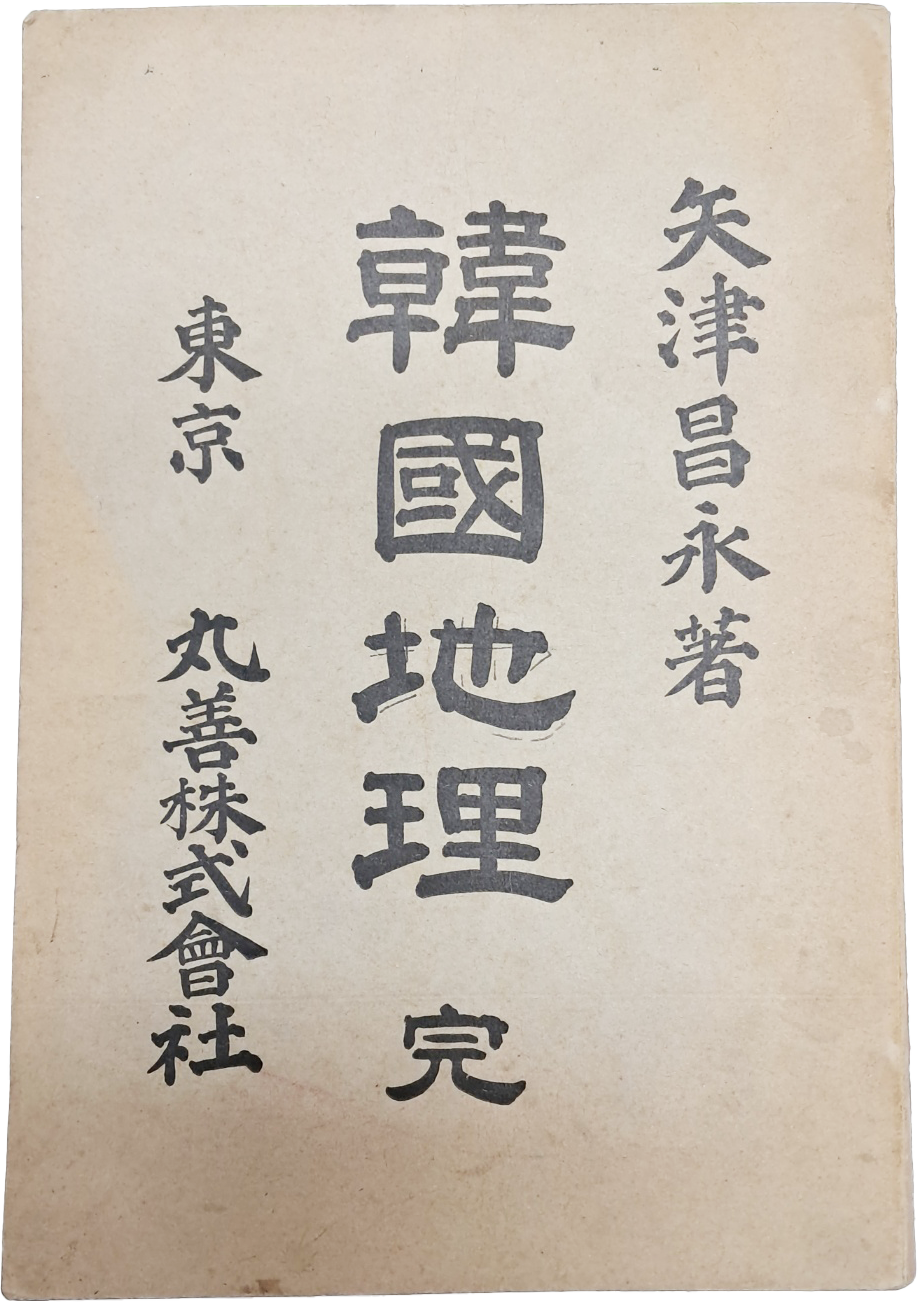 矢津昌永著
韓國地理 完
東京 丸善株式會社